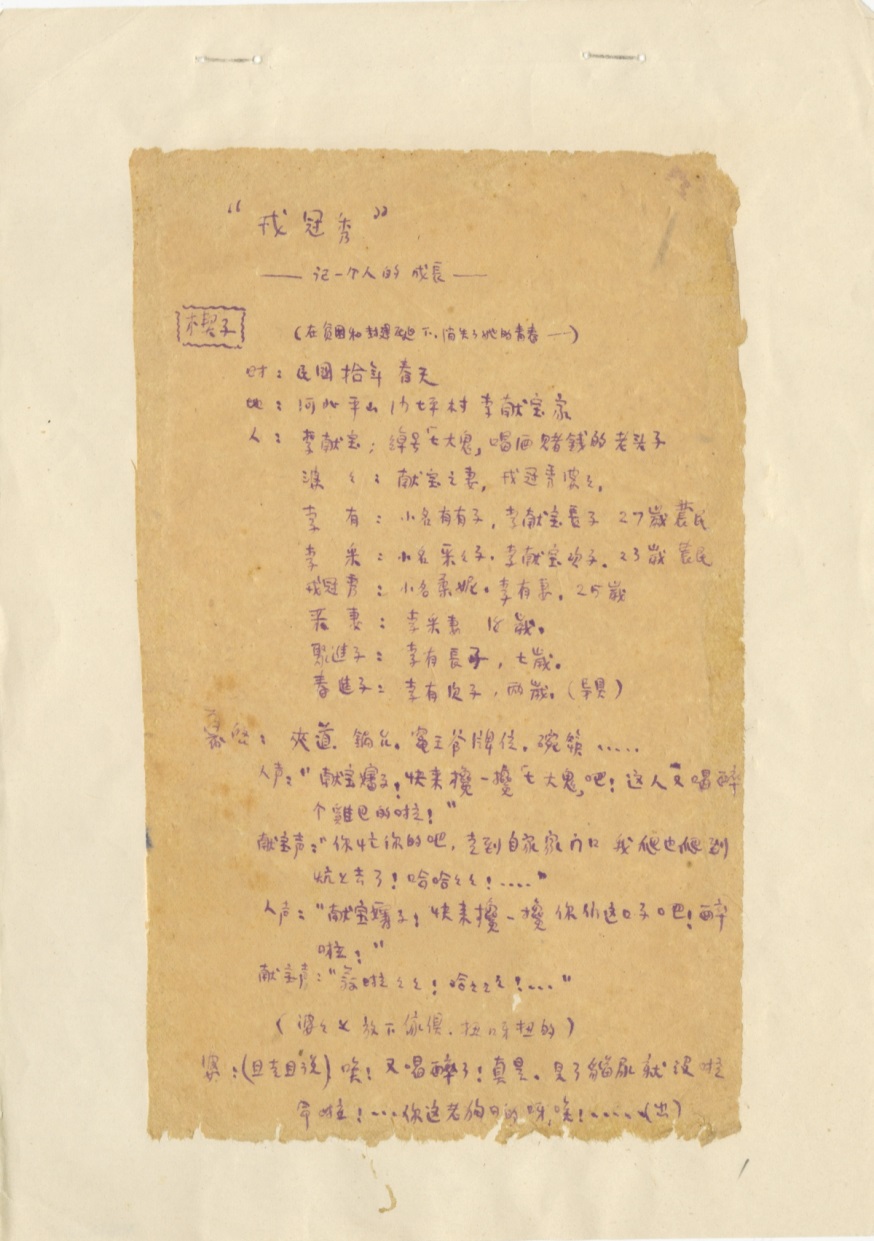 “戎冠秀”
—— 记一个人的成長 ——
楔子
(在貧困和封建压迫下,消失了她的青春——)
时: 民國拾年 春天
地: 河北平山 沙坪村 李献宝家
人: 李献宝: 绰号「七大鬼」,喝酒赌錢的老头子
婆々: 献宝之妻,戎冠秀婆々。
李有: 小名有有子,李献宝長子 27歲 農民
李采: 小名采々子。李献宝次子。23歲 農民
戎冠秀: 小名柔妮。李有妻。25歲
采妻: 李采妻 18歲。
聚進子: 李有長子,七歲。
春進子: 李有次子,两歲。(導具)
幕啓: 夾道。鍋台。竈王爷牌位。碗筷……
人声:“献宝嬸子!快来攙一攙「七大鬼」吧!这人又喝醉
个雞巴的啦!”
献宝声:“你忙你的吧,走到自家家门口 我爬也爬到
炕上去了!哈哈々々!....”
人声:“献宝嬸子!快来攙一攙你们这口子吧!醉
啦!”
献宝声:“ 啦々々!哈々々々!...”
(婆々又放下傢俱。扭呀扭的)
婆:(且走且说)唉!又喝醉了!真是。見了貓尿就没啦
命啦!...你这老狗日的呀,唉!.....(出)